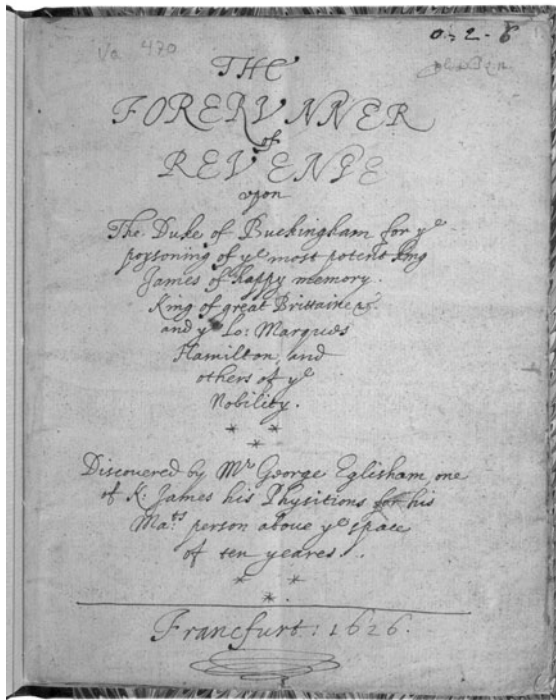 Va 470
0 - 2 - 6
THE
FORERUNNER
of
REVENGE
upon
The Duke of Buckingham for yᵉ
poysoning of yᵉ most potent King
James of happy memory.
King of great Brittaine &.
and yᵉ Lo: Marques
Hamilton, and
others of yᵉ
Nobility.
* *
*
Discovered by Mʳ George Eglisham, one
of K: James his Physitions for his
Maᵗˢ person aboue yᵉ space
of ten yeares.
* *
*
Francfurt: 1626.